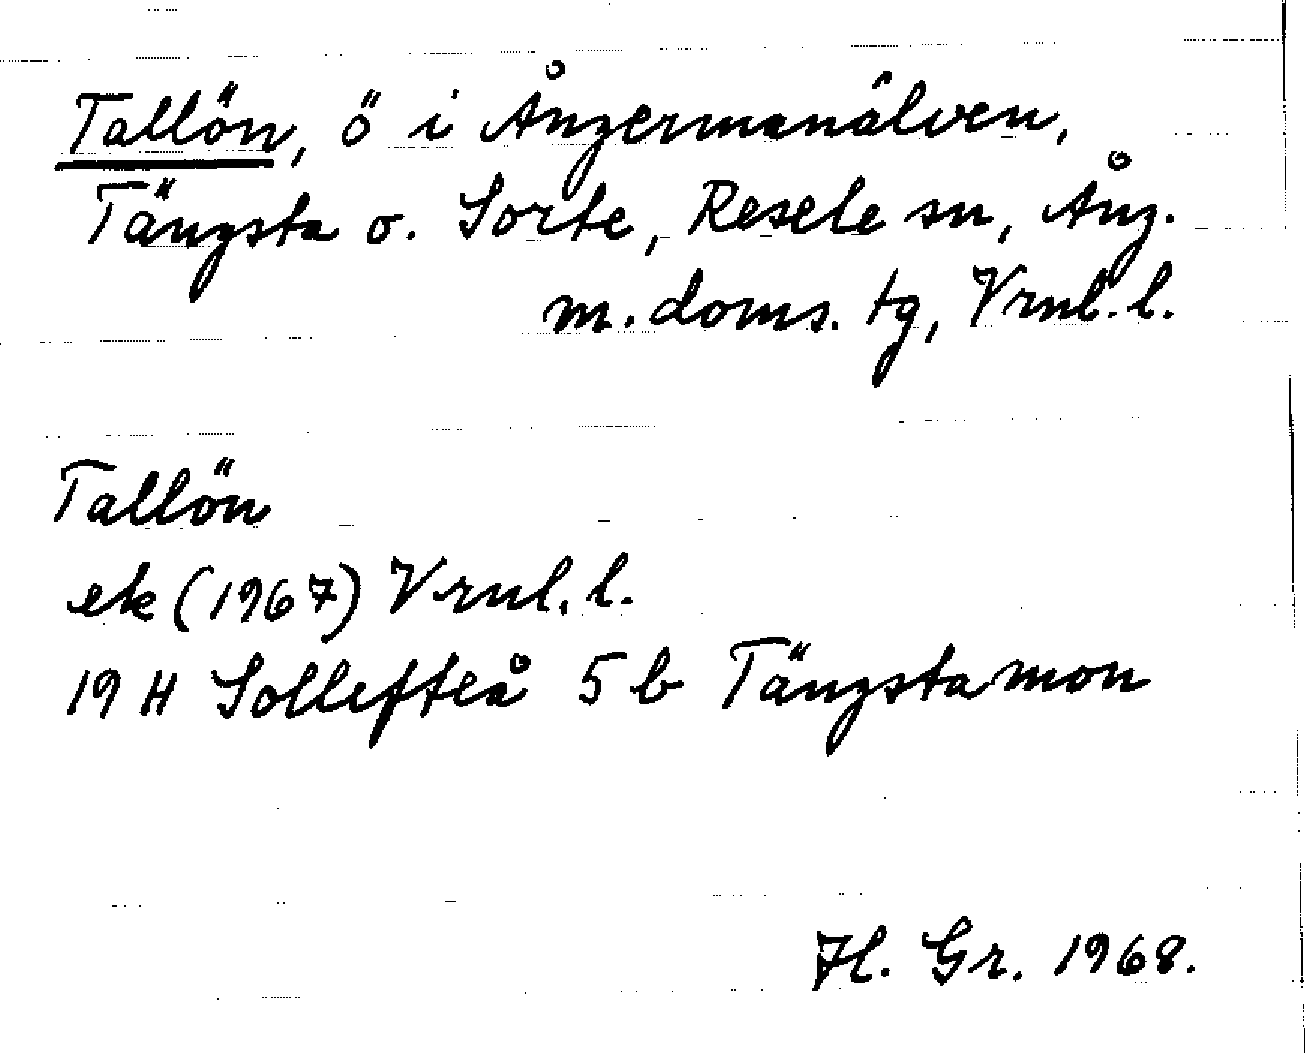 Tallön, ö i Ångermanälven,
Tängsta o. Sorte, Resele sn, Ång.
m. doms. tg, Vrnl. l.
Tallön
ek (1967) Vrnl. l.
19 H Sollefteå 5 b Tängstamon
Hl. Gr. 1968.